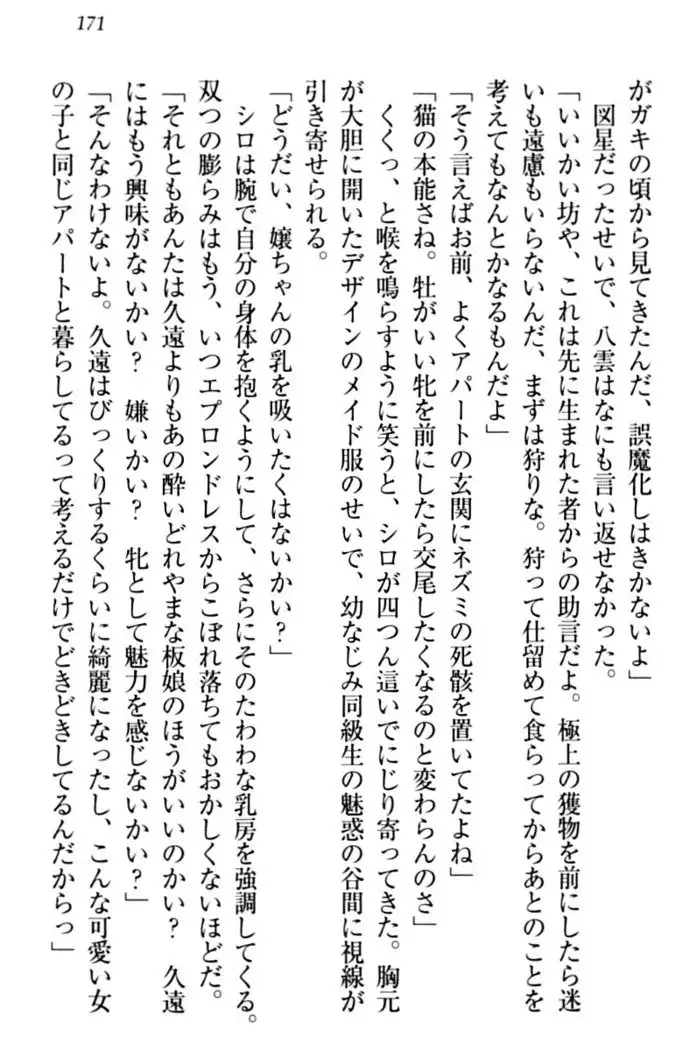 171
がガキの頃から見てきたんだ、誤魔化しはきかないよ」
図星だったせいで、八雲はなにも言い返せなかった。
「いいかい坊や、これは先に生まれた者からの助言だよ。極上の獲物を前にしたら迷
いも遠慮もいらないんだ、まずは狩りな。狩って仕留めて食らってからあとのことを
考えてもなんとかなるもんだよ」
「そう言えばお前、よくアパートの玄関にネズミの死骸を置いてたよね」
「猫の本能さね。牡がいい牝を前にしたら交尾したくなるのと変わらんのさ」
くくっ、と喉を鳴らすように笑うと、シロが四つん這いでにじり寄ってきた。胸元
が大胆に開いたデザインのメイド服のせいで、幼なじみ同級生の魅惑の谷間に視線が
引き寄せられる。
「どうだい、嬢ちゃんの乳を吸いたくはないかい?」
シロは腕で自分の身体を抱くようにして、さらにそのたわわな乳房を強調してくる。
双つの膨らみはもう、いつエプロンドレスからこぼれ落ちてもおかしくないほどだ。
「それともあんたは久遠よりもあの酔いどれやまな板娘のほうがいいのかい? 久遠
にはもう興味がないかい? 嫌いかい? 牝として魅力を感じないかい?」
「そんなわけないよ。久遠はびっくりするくらいに綺麗になったし、こんな可愛い女
の子と同じアパートと暮らしてるって考えるだけでどきどきしてるんだからっ」